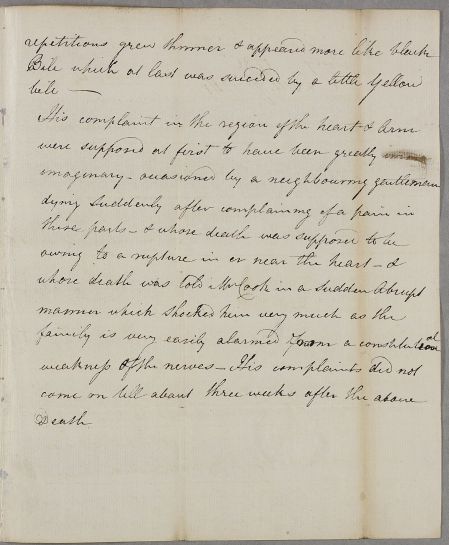 repetitions grew thinner & appeared more like black
Bile which at last was suceeded by a little Yellow
bile —
His complaint in the region of the heart & Arm
were supposd at first to have been greatly
imaginary - ocasioned by a neighbouring gentleman
dying Suddenly after complaining of a pain in
those parts - & whose death was supposed to be
owing to a rupture in or near the heart - &
whose death was told Mr Cook in a Sudden Abrupt
manner which Shocked him very much as the
family is very easily alarmed from a constitutional
weakness of the nerves - His complaints did not
come on till about three weeks after the above
Death